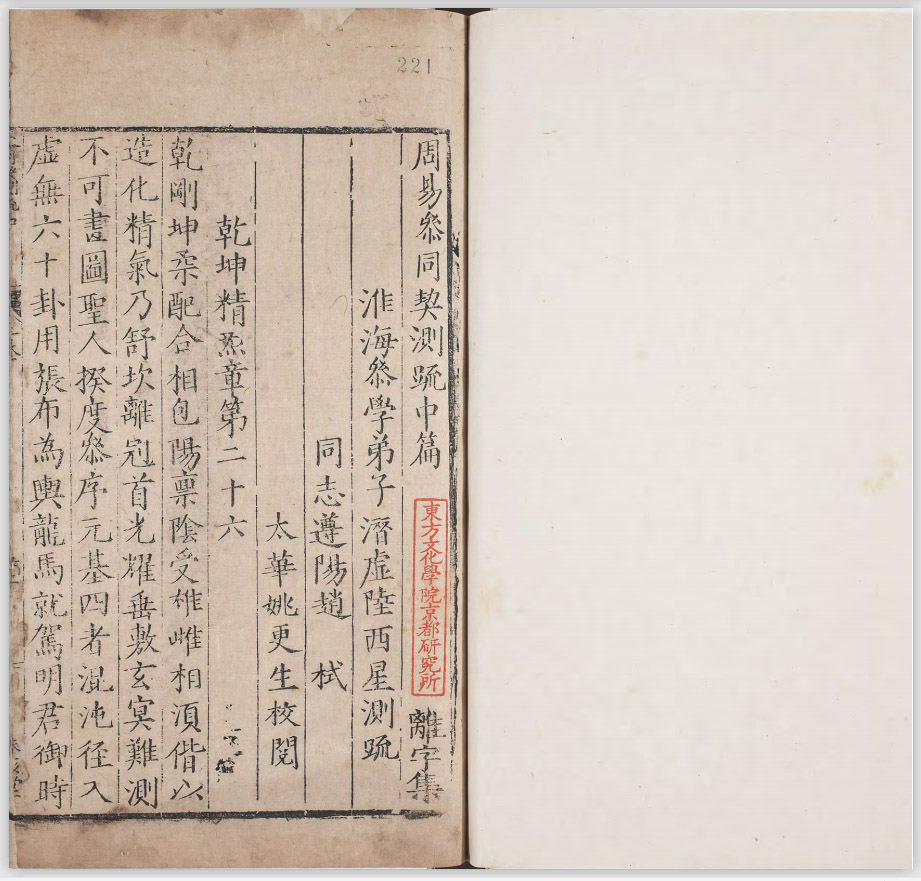 221
周易叅同契測疏中篇
離字集
東方文化學院京都研究所
淮海叅學弟子潛虛陸西星測疏
同志遵陽趙 栻
太華姚更生校閱
乾坤精炁章第二十六
乾剛坤柔配合相包陽稟陰受雄雌相須偕以
造化精氣乃舒坎離冠首光耀垂敷玄冥難測
不可畫圖聖人揆度叅序元基四者混沌徑入
虛無六十卦用張布為輿龍馬就駕明君御時